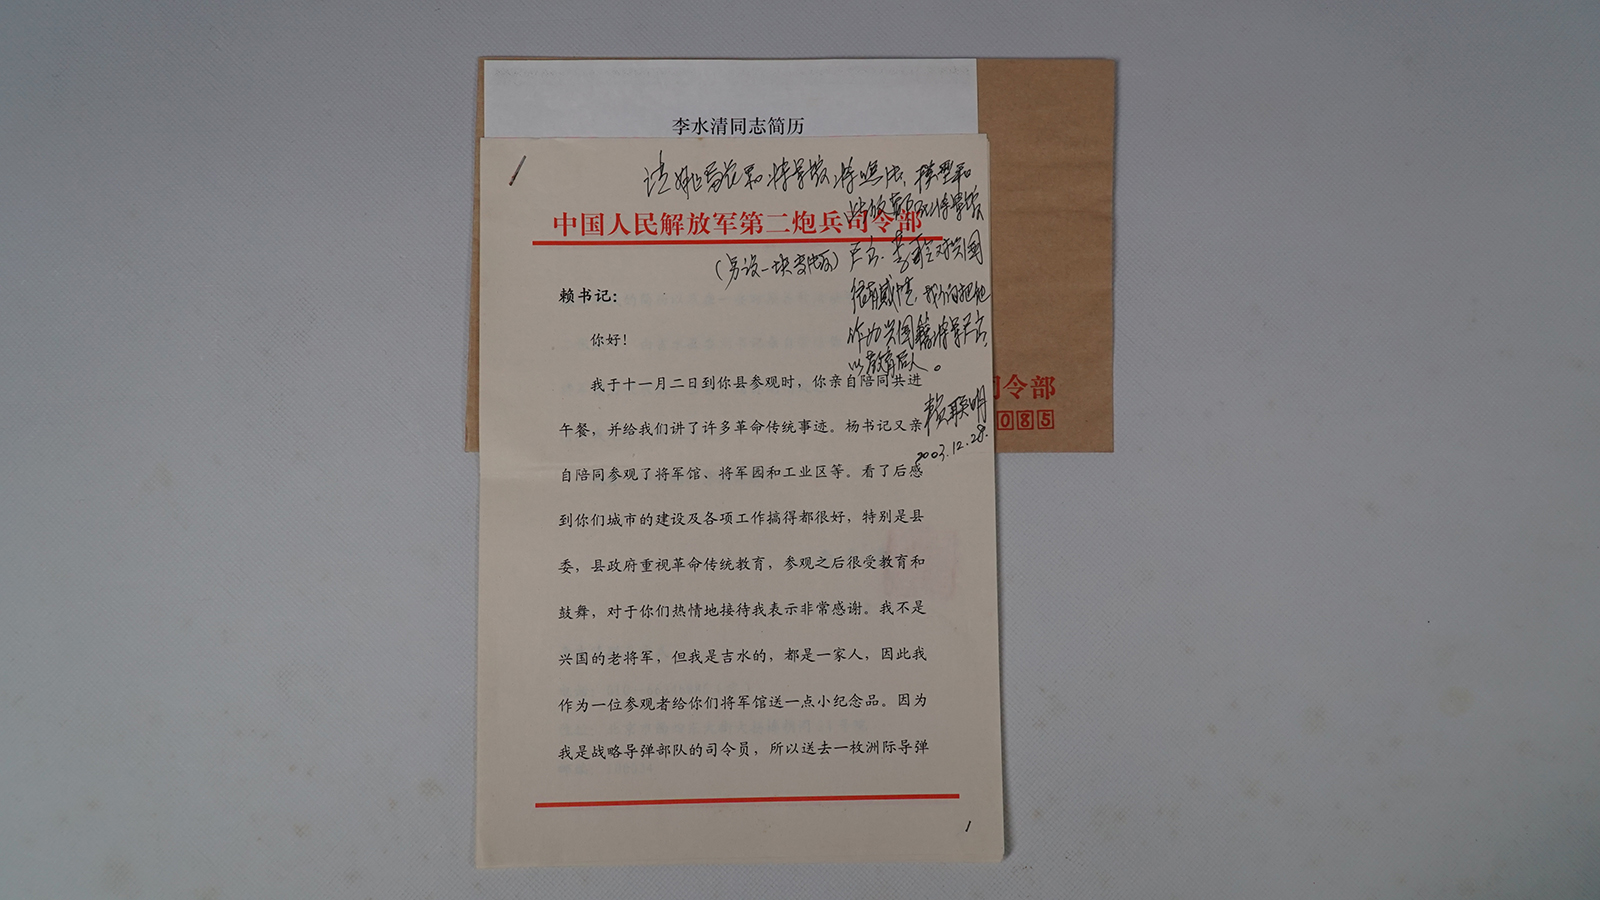 李水清同志简历
中国人民解放军第二炮兵司令部
(另设一块专版)
兴国
作为兴国籍将军
以教育后人。
赖联明
2003.12.28.
赖书记：
你好！
我于十一月二日到你县参观时，你亲自陪同共进
午餐，并给我们讲了许多革命传统事迹。杨书记又亲
自陪同参观了将军馆、将军园和工业区等。看了后感
到你们城市的建设及各项工作搞得都很好，特别是县
委，县政府重视革命传统教育，参观之后很受教育和
鼓舞，对于你们热情地接待我表示非常感谢。我不是
兴国的老将军，但我是吉水的，都是一家人，因此我
作为一位参观者给你们将军馆送一点小纪念品。因为
我是战略导弹部队的司令员，所以送去一枚洲际导弹
1
令部
085